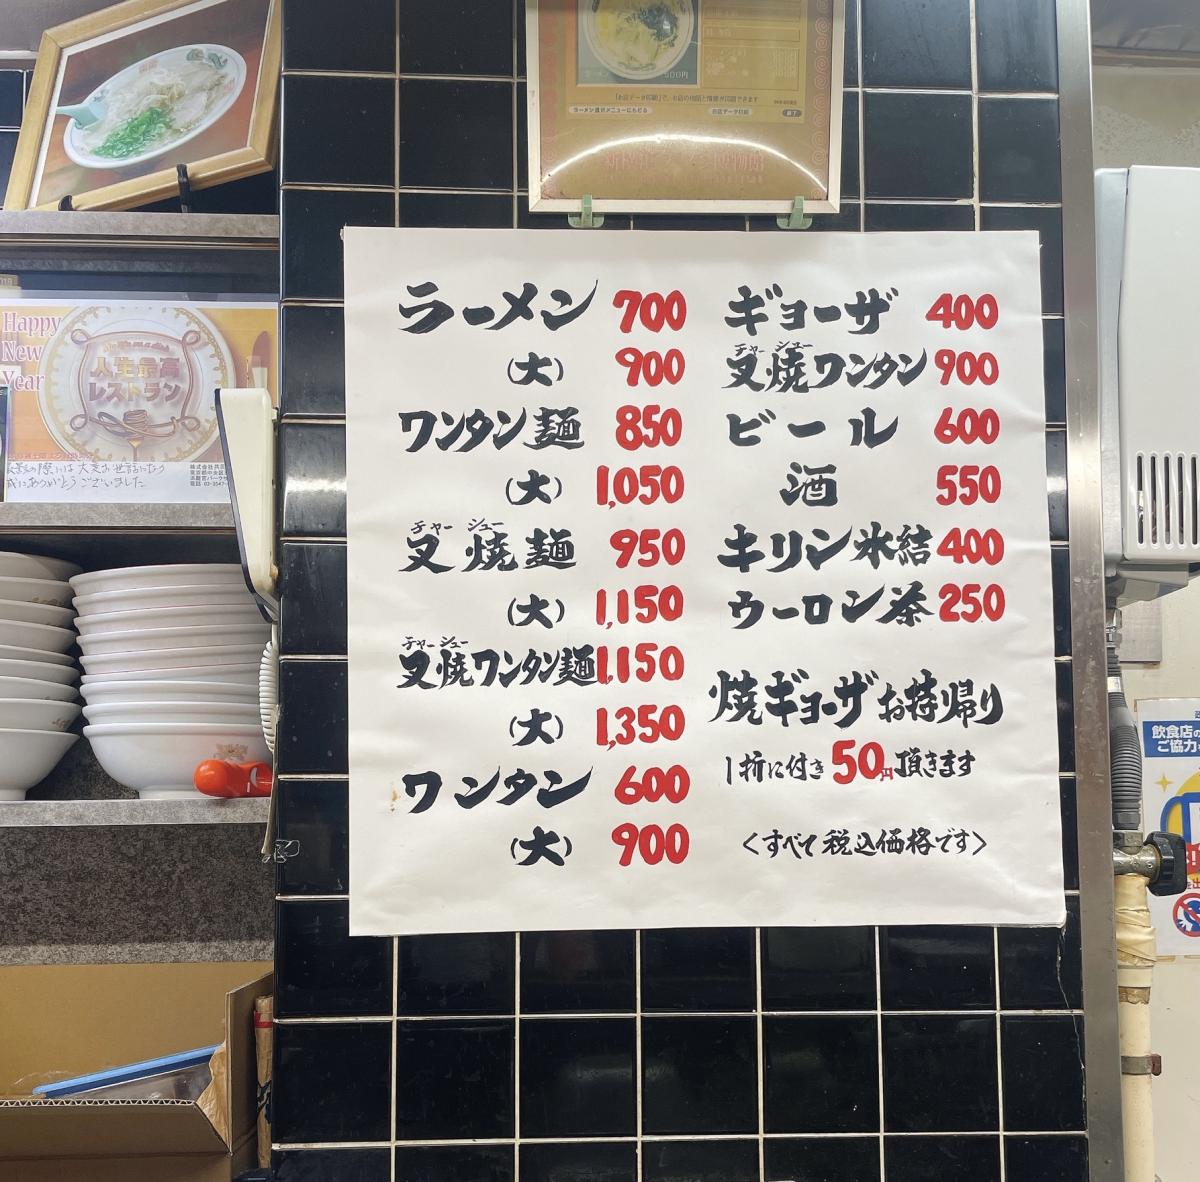 ラーメン 700
(大) 900
ワンタン麺 850
(大) 1,050
チャーシュー
叉焼麺 950
(大) 1,150
チャーシュー
叉焼ワンタン麺 1,150
(大) 1,350
ワンタン 600
(大) 900
ギョーザ 400
チャーシュー
叉焼ワンタン 900
ビール 600
酒 550
キリン氷結 400
ウーロン茶 250
焼ギョーザお持帰り
1折に付き50円頂きます
<すべて税込価格です>
Happy
New
Year
人生最高
レストラン
の際には大変お世話になり
誠にありがとうございました
「お店データ印刷」で、お店の地図と情報が印刷できます
ラーメン選択メニューにもどる
お店データ印刷
終了
飲食店の
ご協力